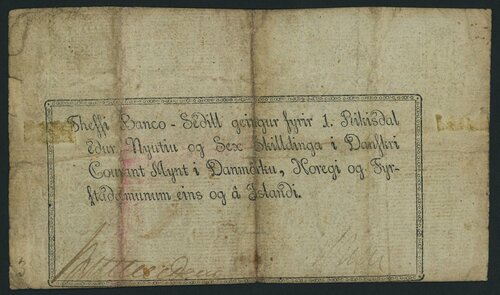 Thessi Banco-Sedill geingur fyrir 1. Rikisdal
edur Nyutiu og Sex Skilldinga i Danskri
Courant Mynt i Danmörku, Noregi og Fyr-
stadæmunum eins og â Islandi.